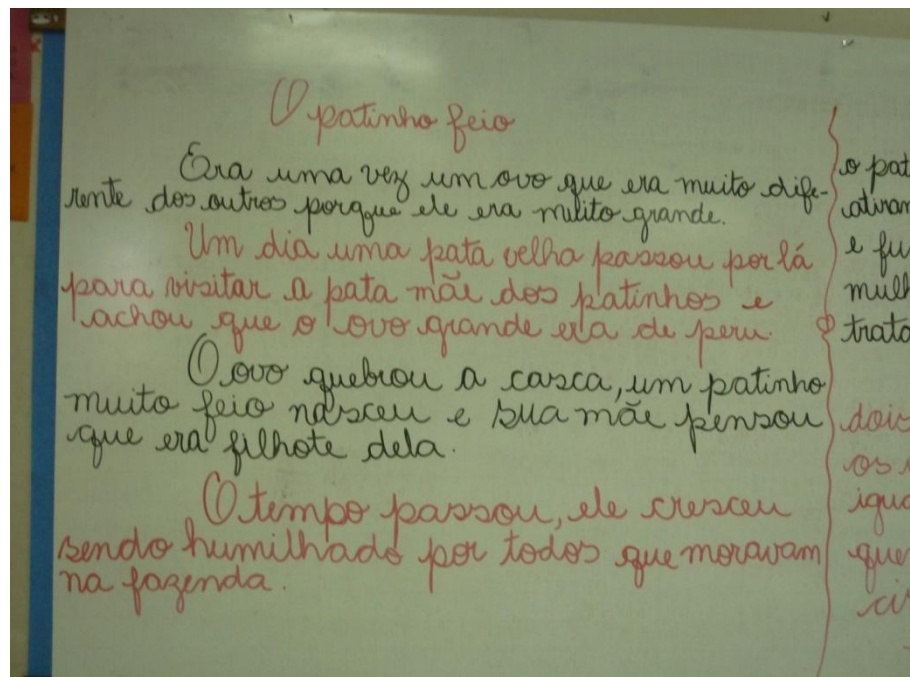 O patinho feio
Era uma vez um ovo que era muito dife-
rente dos outros porque ele era muito grande.
Um dia uma pata velha passou por lá
para visitar a pata mãe dos patinhos e
achou que o ovo grande era de peru.
O ovo quebrou a casca, um patinho
muito feio nasceu e sua mãe pensou
que era filhote dela.
O tempo passou, ele cresceu
sendo humilhado por todos que moravam
na fazenda.
o pat
atiram
e fu
mulh
trata
dois
os
igua
que